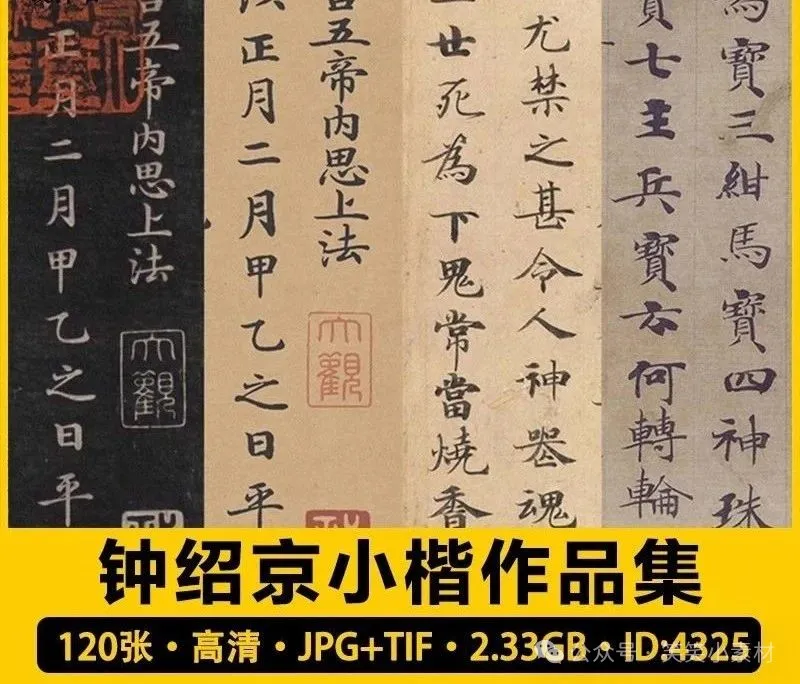 馬寶三紺馬寶四神珠
寶七主兵寶云何轉輪
尤禁之甚令人神器魂
廿死為下鬼常當燒香
五帝内思上法
大觀
正月二月甲乙之日平
五帝内思上法
大觀
正月二月甲乙之日平
钟绍京小楷作品集
120张·高清·JPG+TIF·2.33GB·ID:4325
公众号·笑笑小素材